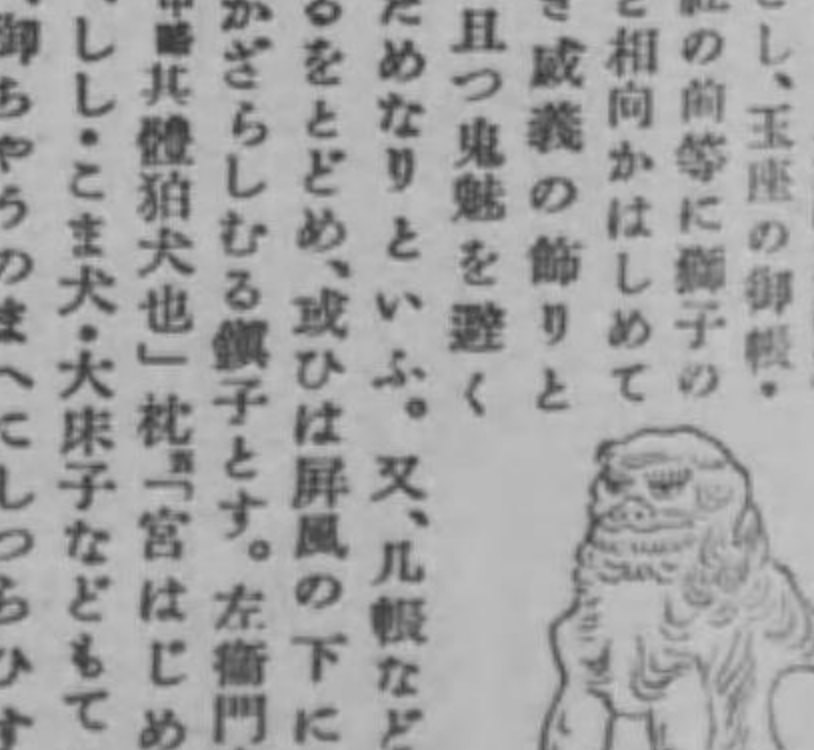 とし、玉座の御帳・
社の前等に獅子の
と相向かはしめて
き威義の飾りと
且つ鬼魅を避く
ためなりといふ。又、几帳など
るをとどめ、或ひは屏風の下に
かざらしむる鎭子とす。左衞門
中略其體狛犬也」枕五「宮はじめ
しし・こま犬・大床子などもて
御ちやうのまへにしつらひす